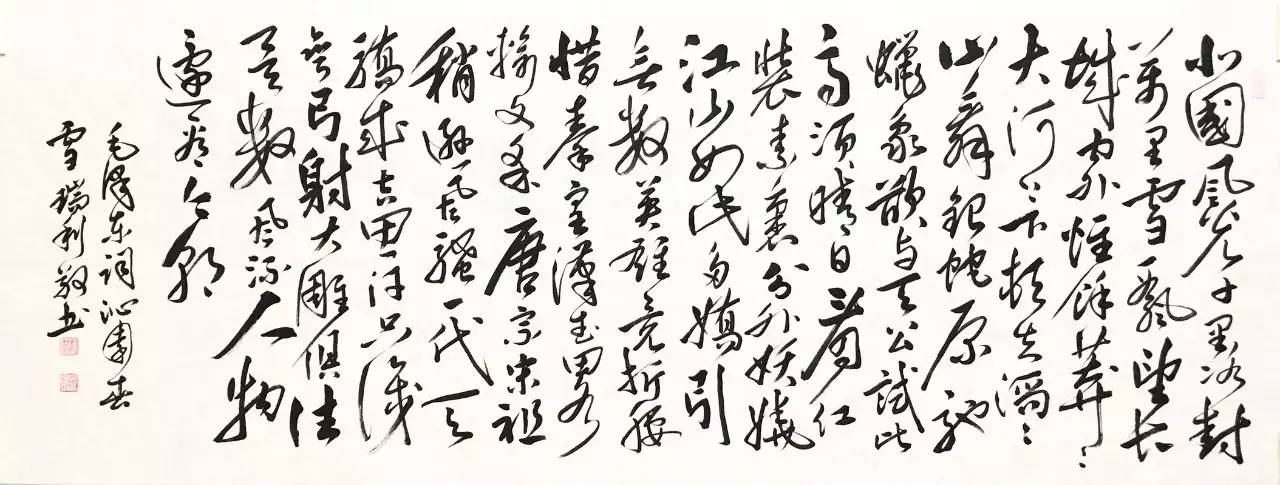 北國風光千里冰封
萬里雪飄望長
城內外惟餘莽〻
大河上下頓失滔〻
山舞銀蛇原馳
蠟象欲與天公試比
高須晴日看紅
裝素裹分外妖嬈
江山如此多嬌引
無數英雄競折腰
惜秦皇漢武畧
輸文采唐宗宋祖
稍遜風騷一代天
驕成吉思汗只識
彎弓射大雕俱往
矣數風流人物
還看今朝
毛澤東詞沁園春
雪瑞利敬书